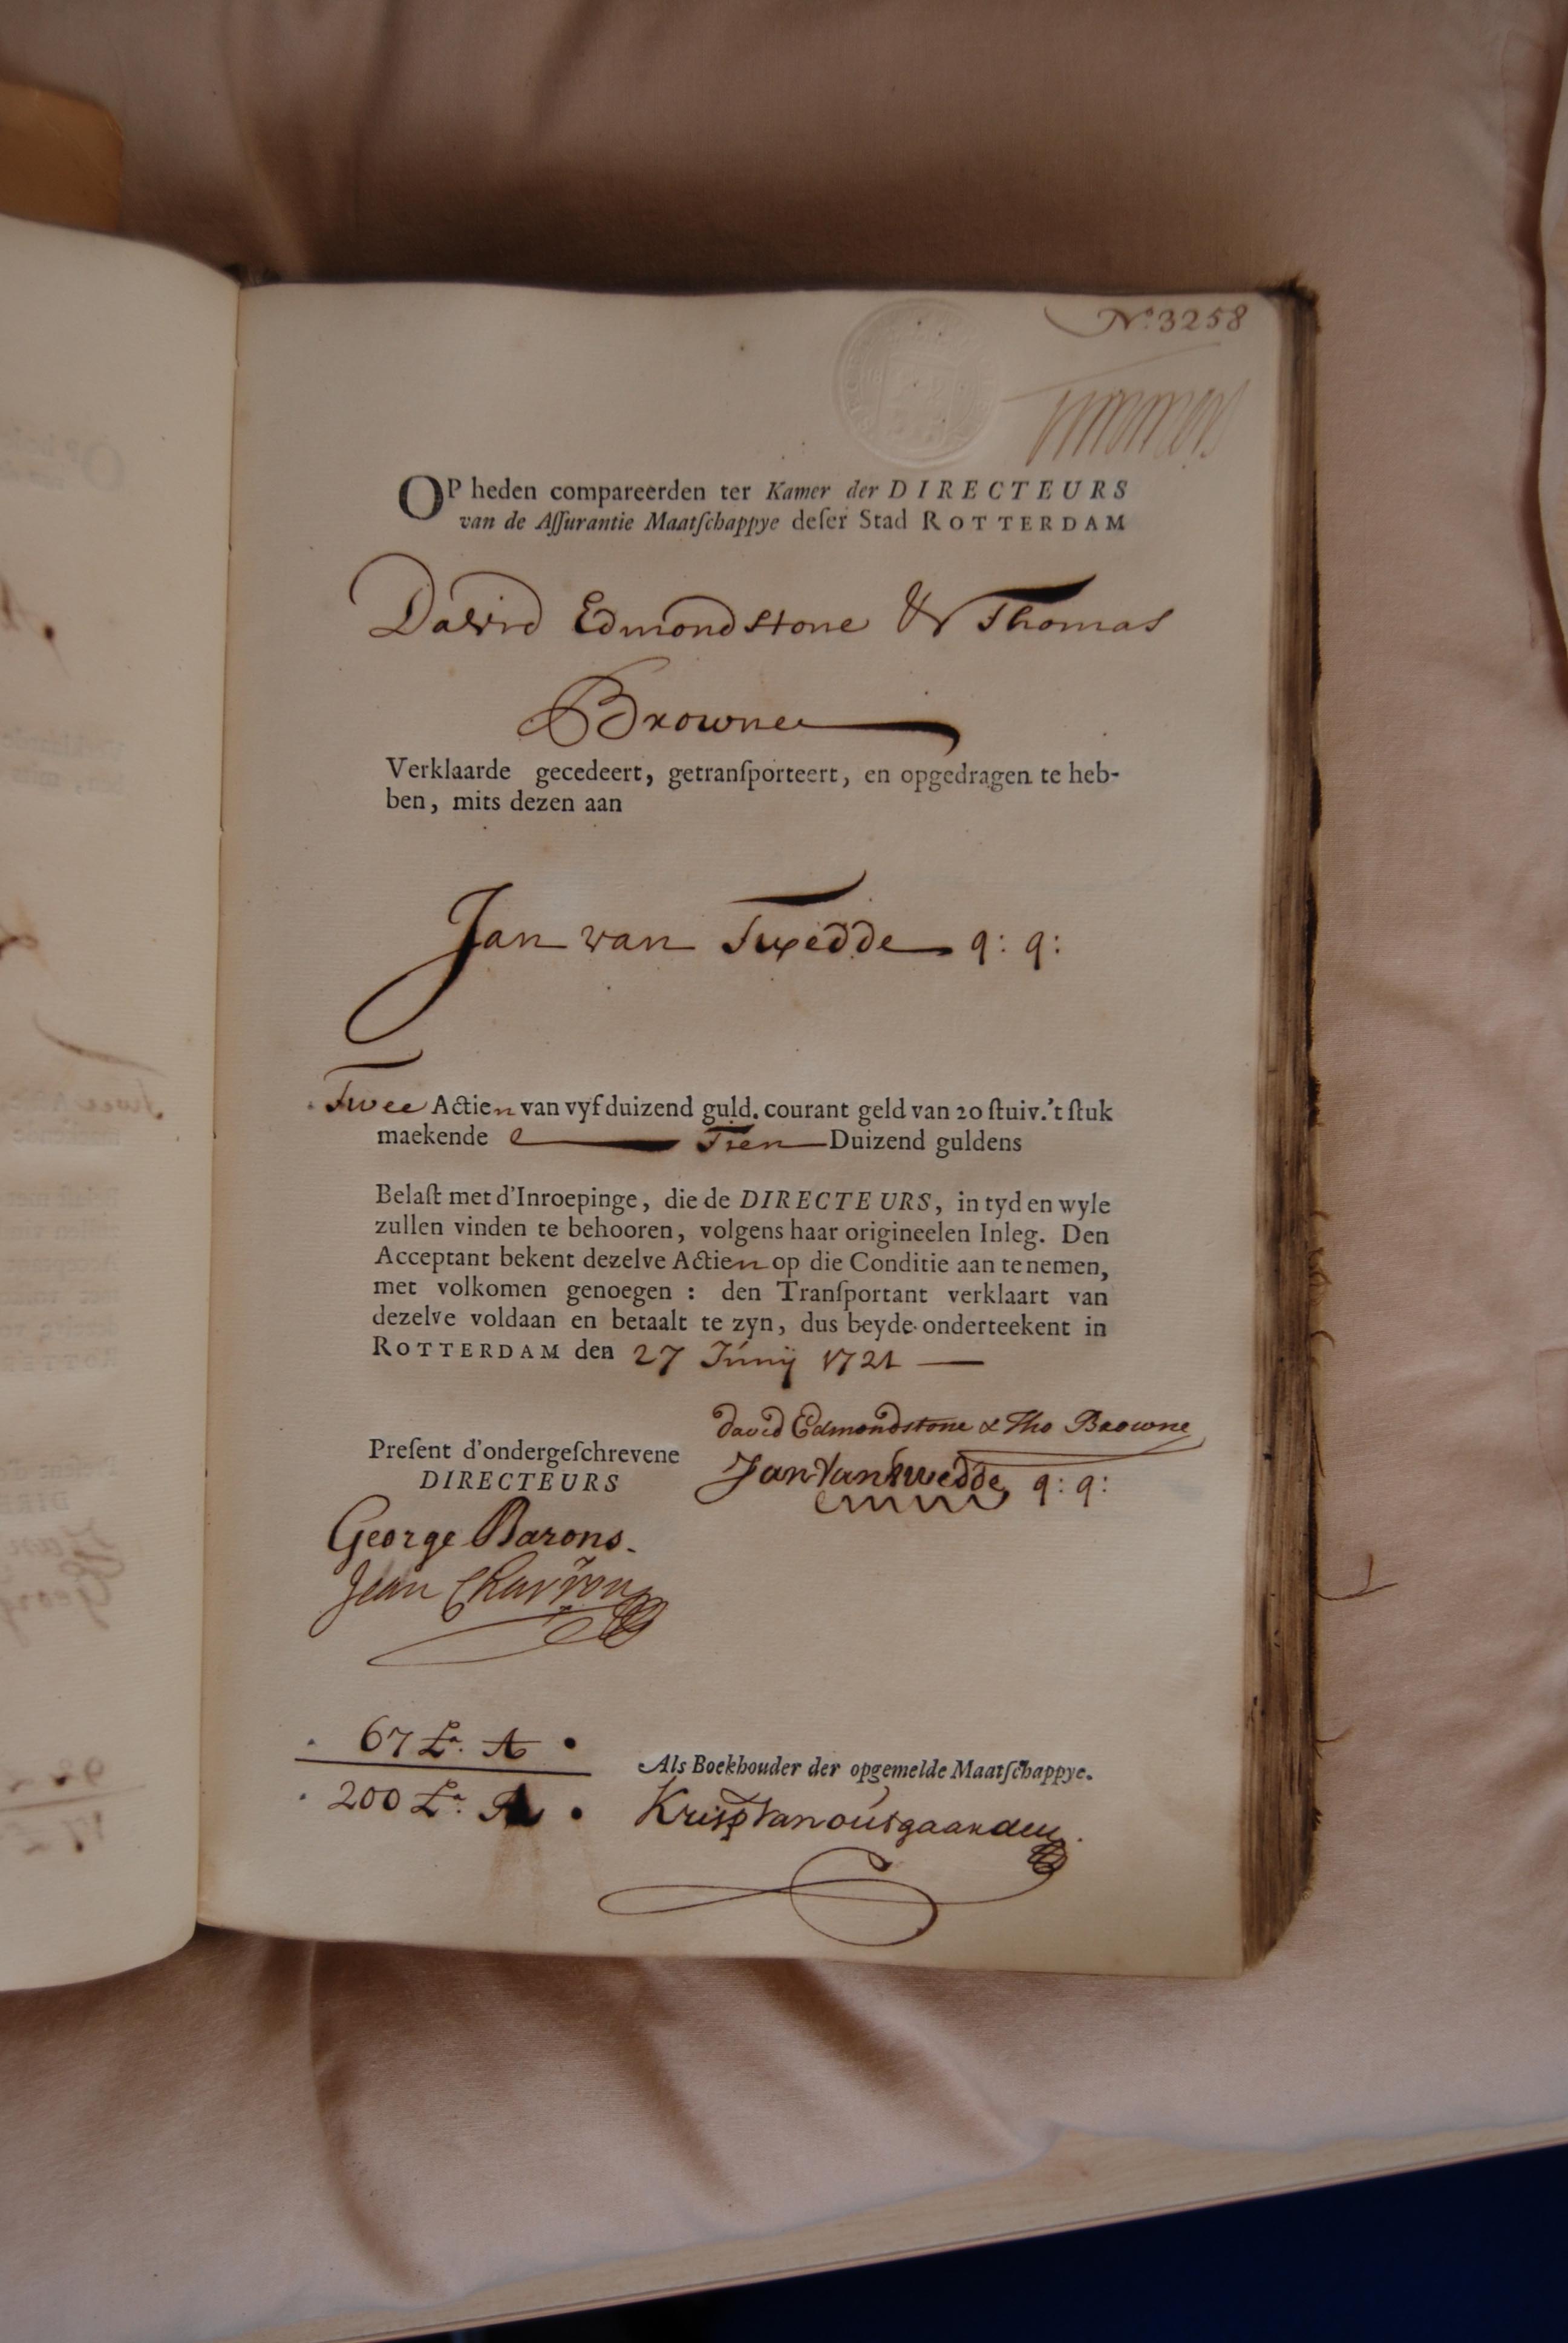 No. 3258
OP heden compareerden ter Kamer der DIRECTEURS
van de Aſſurantie Maatſchappye deſer Stad ROTTERDAM
David Edmondstone & Thomas
Browne
Verklaarde gecedeert, getranſporteert, en opgedragen te heb-
ben, mits dezen aan
Jan van Twedde q: q:
Twee Actien van vyf duizend guld. courant geld van 20 ſtuiv. 't ſtuk
maekende Tien Duizend guldens
Belaſt met d'Inroepinge, die de DIRECTEURS, in tyd en wyle
zullen vinden te behooren, volgens haar origineelen Inleg. Den
Acceptant bekent dezelve Actien op die Conditie aan te nemen,
met volkomen genoegen : den Tranſportant verklaart van
dezelve voldaan en betaalt te zyn, dus beyde onderteekent in
ROTTERDAM den 27 Junij 1721
david Edmondstone & Tho Browne
Preſent d'ondergeſchrevene
DIRECTEURS
Jan Van Twedde q: q:
George Barons.
Jean Charron
67 La. A
Als Boekhouder der opgemelde Maatſchappye.
200 La.
Krisp Van outgaarden